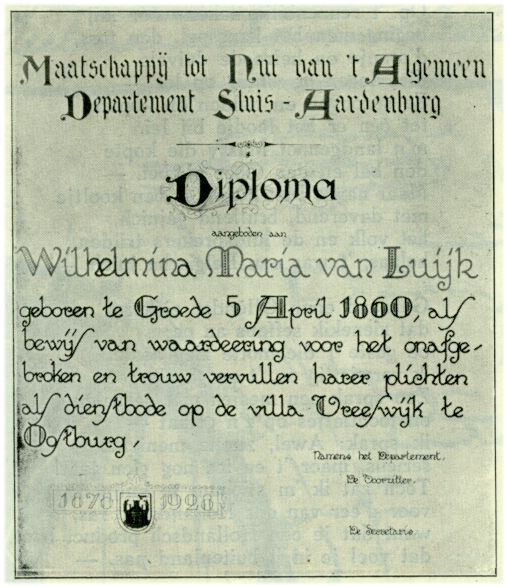 Maatschappij tot Nut van 't Algemeen
Departement Sluis - Aardenburg
Diploma
aangeboden aan
Wilhelmina Maria van Luijk
geboren te Groede 5 April 1860, als
bewijs van waardeering voor het onafge-
broken en trouw vervullen harer plichten
als dienstbode op de villa Vreeswijk te
Oostburg.
Namens het Departement,
De Voorzitter,
1878 1928
De Secretaris